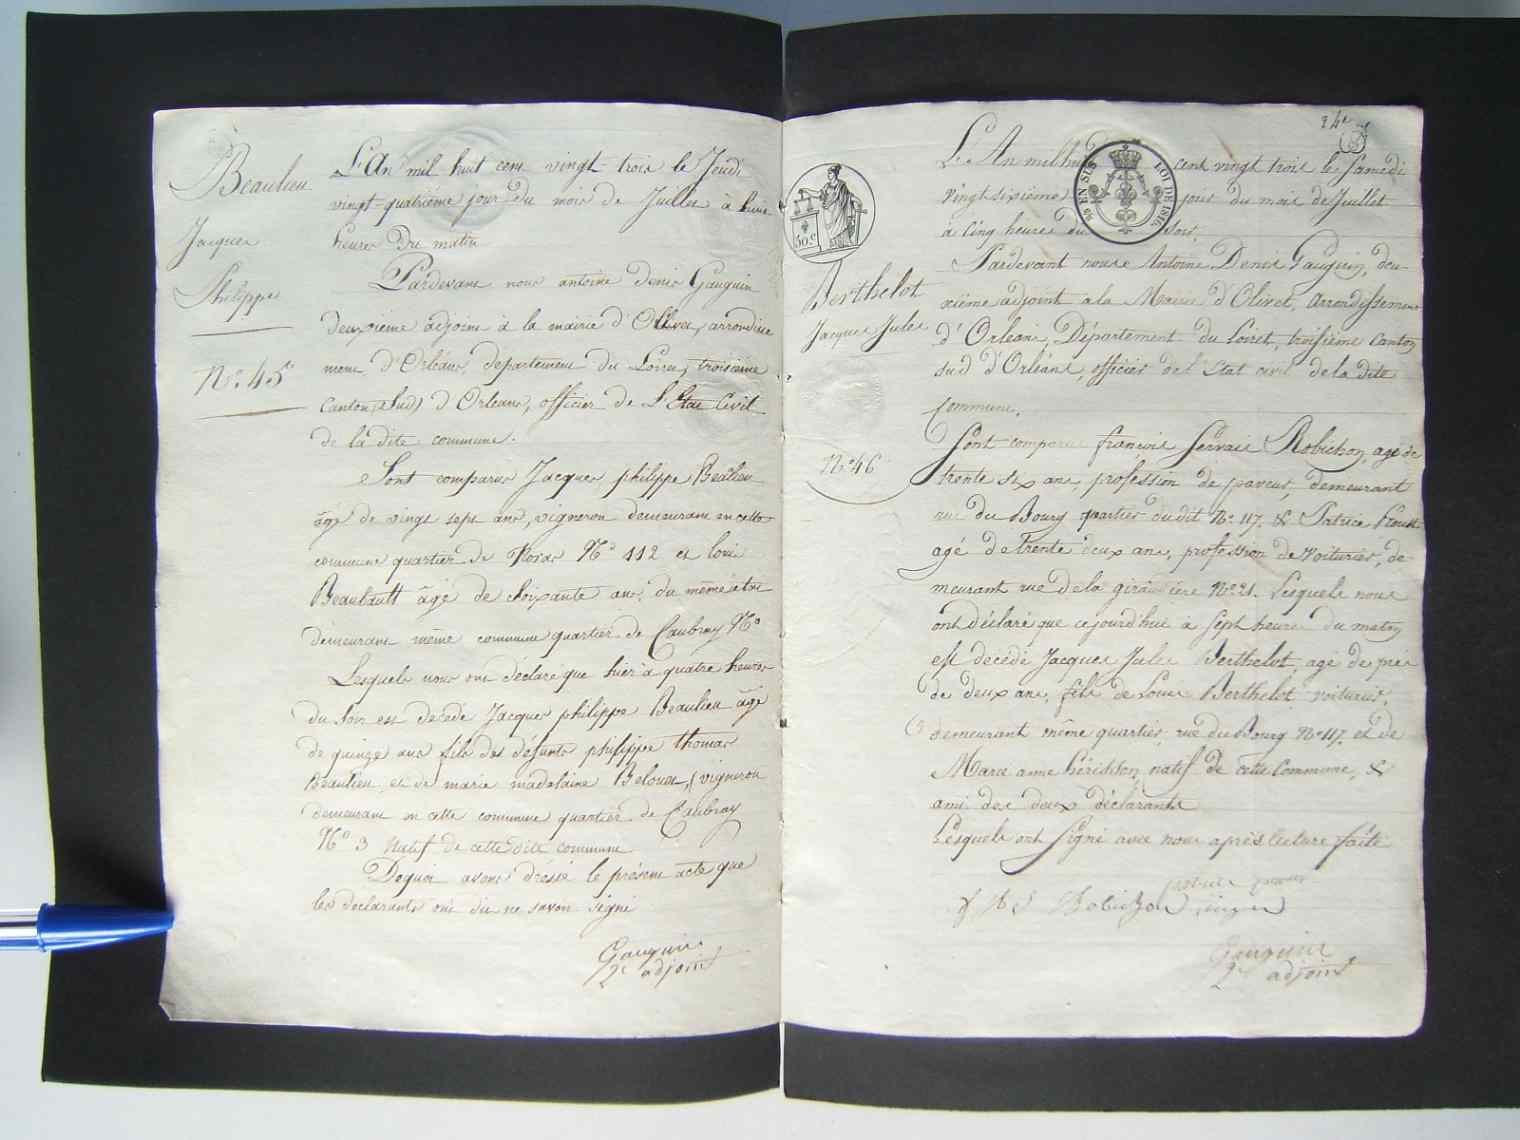 Beaulieu
Jacques
Philippe
N.o 45
L'An mil huit cent vingt-trois le Jeudi
vingt-quatrième jour du mois de Juillet à huit
heures du matin
Pardevant nous antoine denis Gauguin
deuxième adjoint à la mairie d'Olivet, arrondisse
ment d'Orléans, departement du Loiret, troisième
Canton (Sud) d'Orleans, officier de L'Etat Civil
de la dite commune.
Sont comparus Jacques philippe Beaulieu
âgé de vingt sept ans, vigneron demeurant en cette
commune quartier de N.o 112 et louis
Beaulault âgé de soixante ans, du même état
demeurant même commune quartier de Caubray N.o
Lesquels nous ont déclaré que hier à quatre heures
du Soir est decedé Jacques philippe Beaulieu âgé
de quinze ans fils des défunts philippe thomas
Beaulieu et de marie madelaine vigneron
demeurant en cette commune quartier de Caubray
N.o 3 natif de cette dite commune
Dequoi avons dressé le présent acte que
les declarants ont dit ne savoir signé
Gauguin
2e adjoint
24e
30 c
EN SUS
ROI DE 1816
Berthelot
Jacques Jules
N.o 46
L'An mil huit cent vingt trois le Samedi
vingt sixième jour du mois de Juillet
à cinq heures du soir,
Pardevant nous Antoine Denis Gauguin, deu-
xième adjoint a la Mairie d'Olivet, arrondissement
d'Orleans, Département du Loiret, troisième canton
sud d'Orléans, officier de l'Etat civil de la dite
commune.
Sont comparus françois Servais Robichon, agé de
trente six ans, profession de paveur, demeurant
rue du Bourg quartier dudit N.o 117. & Patrice
agé de trente deux ans, profession de voiturier, de-
meurant rue de la N.o 21. Lesquels nous
ont déclaré que cejourd'hui à sept heures du matin
est decédé Jacques Jules Berthelot, agé de près
de deux ans, fils de Louis Berthelot voiturier,
demeurant même quartier, rue du Bourg N.o 117. et de
Marie anne hérisson, natif de cette Commune, &
ami des deux déclarants
Lesquels ont signé avec nous après lecture faite
Robichon
Gauguin
2e adjoint